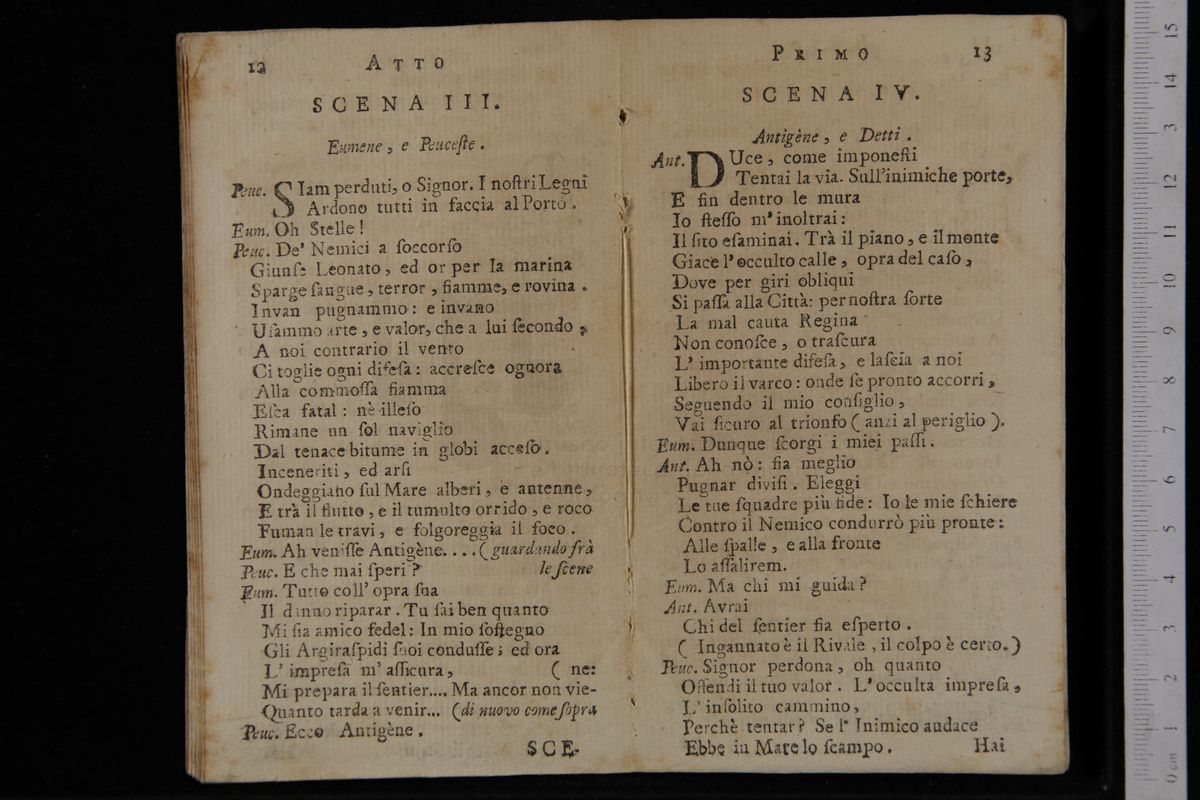 12
ATTO
SCENA III.
Eumene, e Peuceſte.
Peuc. SIam perduti, o Signor. I noſtri Legni
Ardono tutti in faccia al Porto.
Eum. Oh Stelle!
Peuc. De' Nemici a ſoccorſo
Giunſe Leonato, ed or per la marina
Sparge ſangue, terror, fiamme, e rovina.
Invan pugnammo: e invano
Uſammo arte, e valor, che a lui ſecondo,
A noi contrario il vento
Ci toglie ogni difeſa: accreſce ognora
Alla commoſſa fiamma
Eſca fatal: nè illeſo
Rimane un ſol naviglio
Dal tenace bitume in globi acceſo.
Inceneriti, ed arſi
Ondeggiano ſul Mare alberi, e antenne,
E trà il flutto, e il tumulto orrido, e roco
Fuman le travi, e folgoreggia il foco.
Eum. Ah veniſſe Antigène.... (guardando frà
Peuc. E che mai ſperi? le ſcene
Eum. Tutto coll' opra ſua
Il danno riparar. Tu ſai ben quanto
Mi ſia amico fedel: In mio ſoſtegno
Gli Argiraſpidi ſuoi conduſſe; ed ora
L' impreſa m' aſſicura, ( ne:
Mi prepara il ſentier.... Ma ancor non vie-
Quanto tarda a venir... (di nuovo come ſopra
Peuc. Ecco Antigène.
SCE-
PRIMO
13
SCENA IV.
Antigène, e Detti.
Ant. DUce, come imponeſti
Tentai la via. Sull'inimiche porte,
E fin dentro le mura
Io ſteſſo m' inoltrai:
Il ſito eſaminai. Trà il piano, e il monte
Giace l'occulto calle, opra del caſo,
Dove per giri obliqui
Si paſſa alla Città: per noſtra ſorte
La mal cauta Regina
Non conoſce, o traſcura
L' importante difeſa, e laſcia a noi
Libero il varco: onde ſe pronto accorri,
Seguendo il mio conſiglio,
Vai ſicuro al trionfo (anzi al periglio).
Eum. Dunque ſcorgi i miei paſſi.
Ant. Ah nò: fia meglio
Pugnar diviſi. Eleggi
Le tue ſquadre più fide: Io le mie ſchiere
Contro il Nemico condurrò più pronte:
Alle ſpalle, e alla fronte
Lo aſſalirem.
Eum. Ma chi mi guida?
Ant. Avrai
Chi del ſentier ſia eſperto.
( Ingannato è il Rivale, il colpo è certo.)
Peuc. Signor perdona, oh quanto
Offendi il tuo valor. L'occulta impreſa,
L' inſolito cammino,
Perchè tentar? Se l' Inimico audace
Ebbe in Mare lo ſcampo.
Hai
0 cm 1 2 3 4 5 6 7 8 9 10 11 12 3 14 15